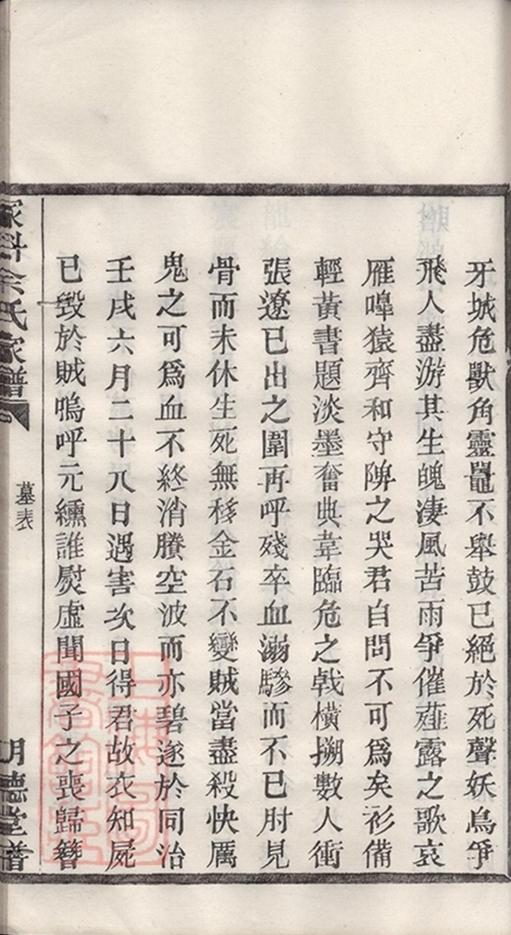 牙城危獸角靈鼉不舉鼓已絕於死聲妖鳥爭
飛人盡游其生魄淒風苦雨爭催薤露之歌哀
雁嘷猿齊和守陴之哭君自問不可爲矣衫備
輕黃書題淡墨奮典韋臨危之戟橫搠數人衝
張遼已出之圍再呼殘卒血溺驂而不已肘見
骨而未休生死無移金石不變賊當盡殺快厲
鬼之可爲血不終消賸空波而亦碧遂於同治
壬戌六月二十八日遇害次日得君故衣知屍
已毀於賊嗚呼元纁誰熨虛聞國子之喪歸簪
余氏家譜
墓表
明德堂譜